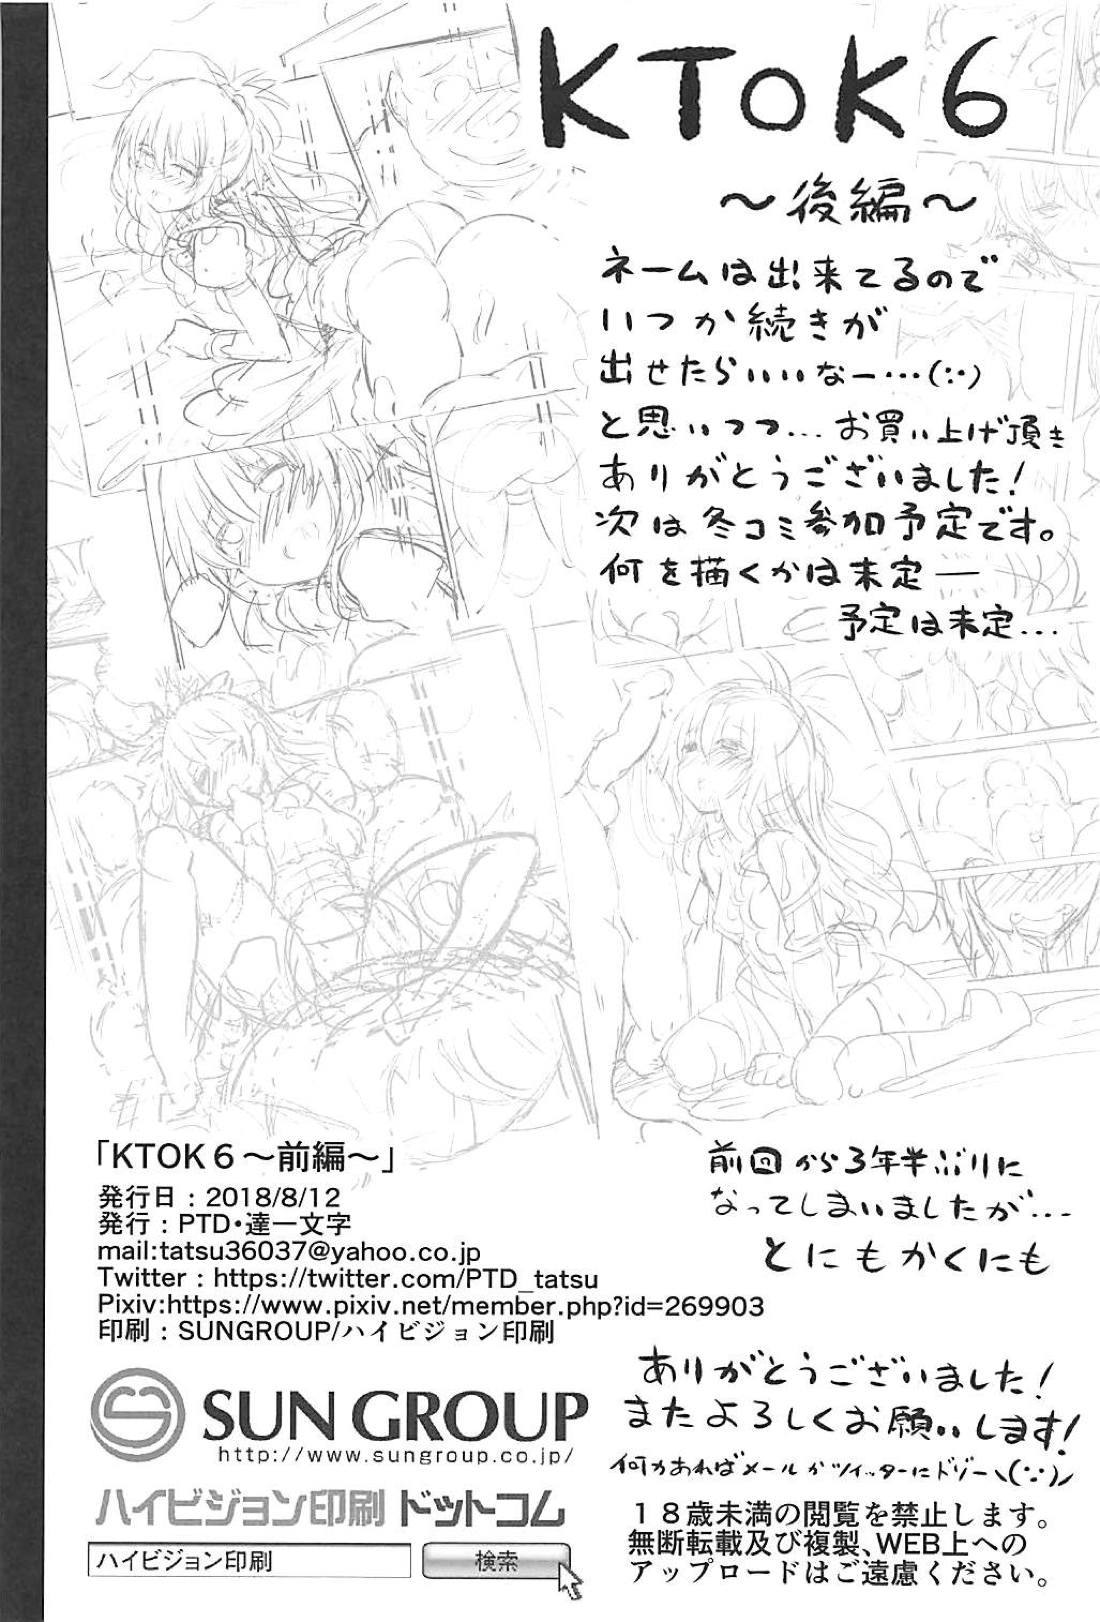 KTOK6
～後編～
ネームは出来てるので
いつか続きが
出せたらいいなー…(:･)
と思いつつ…お買い上げ頂き
ありがとうございました!
次は冬コミ参加予定です。
何を描くかは未定―
予定は未定…
「KTOK６～前編～」
発行日：2018/8/12
発行：PTD・達一文字
mail:tatsu36037@yahoo.co.jp
Twitter：https://twitter.com/PTD_tatsu
Pixiv:https://www.pixiv.net/member.php?id=269903
印刷：SUNGROUP/ハイビジョン印刷
前回から3年半ぶりに
なってしまいましたが…
とにもかくにも
ありがとうございました!
またよろしくお願いします!
何かあればメールかツイッターにドゾー＼(:･)ﾉ
SUN GROUP
http://www.sungroup.co.jp/
ハイビジョン印刷 ドットコム
ハイビジョン印刷 検索
１８歳未満の閲覧を禁止します。
無断転載及び複製、WEB上への
アップロードはご遠慮ください。